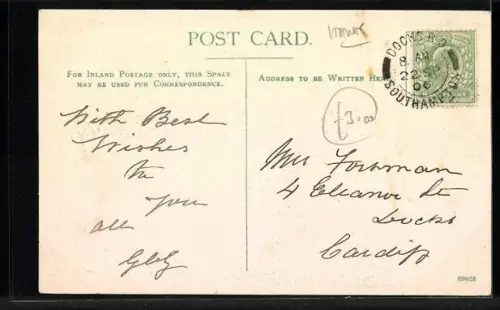 POST CARD.
FOR INLAND POSTAGE ONLY, THIS SPACE
MAY BE USED FOR CORRESPONDENCE.
ADDRESS TO BE WRITTEN HERE.
DOCKS B.O.
8 AM
22 SP
06
SOUTHAMPTON
£3.00
With Best
Wishes
to
you
all
Mrs Foreman
4 Eleanor St
Docks
Cardiff